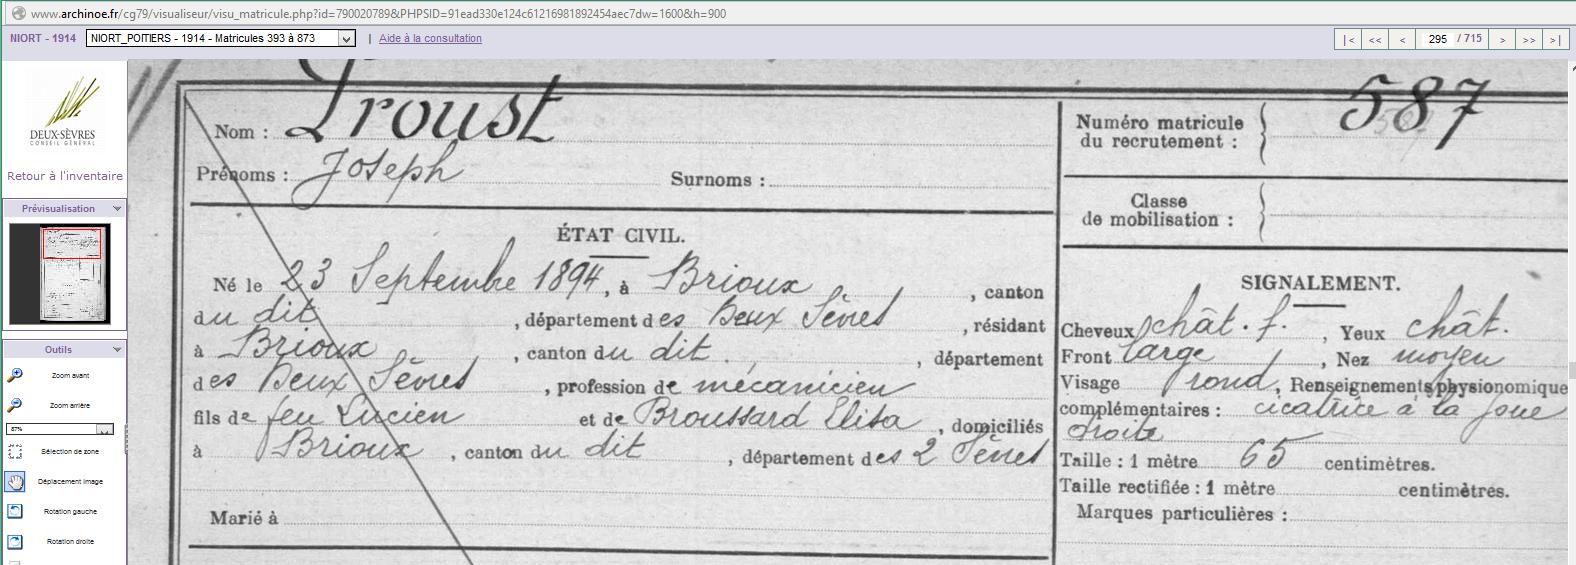 www.archinoe.fr/cg79/visualiseur/visu_matricule.php?id=790020789&PHPSID=91ead330e124c61216981892454aec7dw=1600&h=900
NIORT - 1914
NIORT_POITIERS - 1914 - Matricules 393 à 873
| Aide à la consultation
|< << < 295 / 715 > >> >|
DEUX-SÈVRES
CONSEIL GÉNÉRAL
Retour à l'inventaire
Prévisualisation
Outils
Zoom avant
Zoom arrière
87%
Sélection de zone
Déplacement image
Rotation gauche
Rotation droite
Nom : Proust
Prénoms : Joseph Surnoms :
ÉTAT CIVIL.
Né le 23 Septembre 1894, à Brioux, canton
du dit, département des Deux Sèvres, résidant
à Brioux, canton du dit, département
des Deux Sèvres, profession de mécanicien
fils de feu Lucien et de Broussard Elisa, domiciliés
à Brioux, canton du dit, département des 2 Sèvres
Marié à
Numéro matricule
du recrutement : 587
Classe
de mobilisation :
SIGNALEMENT.
Cheveux chât. f., Yeux chât.
Front large, Nez moyen
Visage rond, Renseignements physionomique
complémentaires : cicatrice à la joue
droite
Taille : 1 mètre 65 centimètres.
Taille rectifiée : 1 mètre centimètres.
Marques particulières :